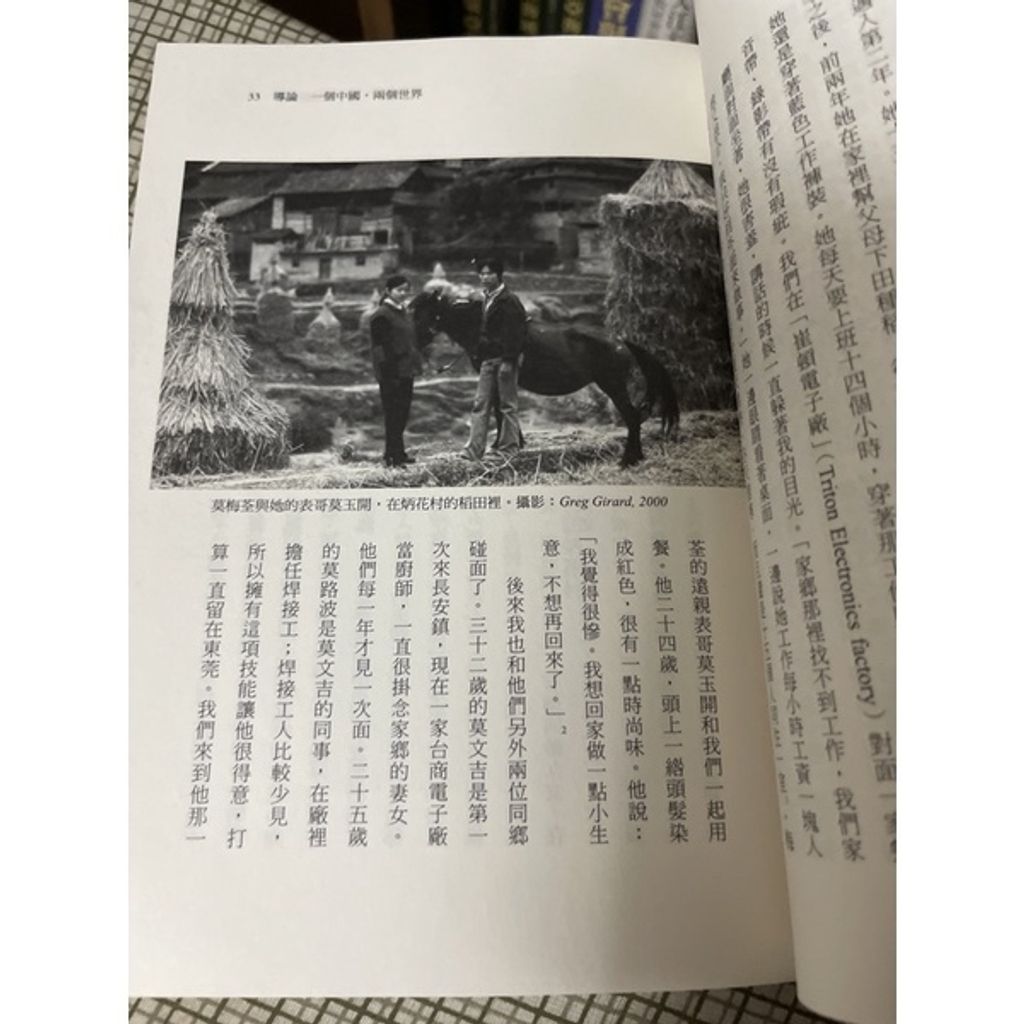 人第二年。她
之後，前兩年她在家裡幫父母下田種稻，
她還是穿著藍色工作褲裝。她每天要上班十四個小時，穿著那
音帶、錄影帶有沒有瑕疵。我們在「崔頓電子廠」（Triton Electronics factory）對面一家
她很害羞，講話的時候一直躲著我的目光。「家鄉那裡找不到工作，我們家
一邊眼睛看著桌面，一邊說她工作每小時工資一塊人
33　導論　一個中國，兩個世界
莫梅荃與她的表哥莫玉開，在炳花村的稻田裡。攝影：Greg Girard, 2000
荃的遠親表哥莫玉開和我們一起用
餐。他二十四歲，頭上一綹頭髮染
成紅色，很有一點時尚味。他說：
「我覺得很慘。我想回家做一點小生
意，不想再回來了。」2
後來我也和他們另外兩位同鄉
碰面了。三十二歲的莫文吉是第一
次來長安鎮，現在一家台商電子廠
當廚師，一直很掛念家鄉的妻女。
他們每一年才見一次面。二十五歲
的莫路波是莫文吉的同事，在廠裡
擔任焊接工；焊接工人比較少見，
所以擁有這項技能讓他很得意，打
算一直留在東莞。我們來到他那一